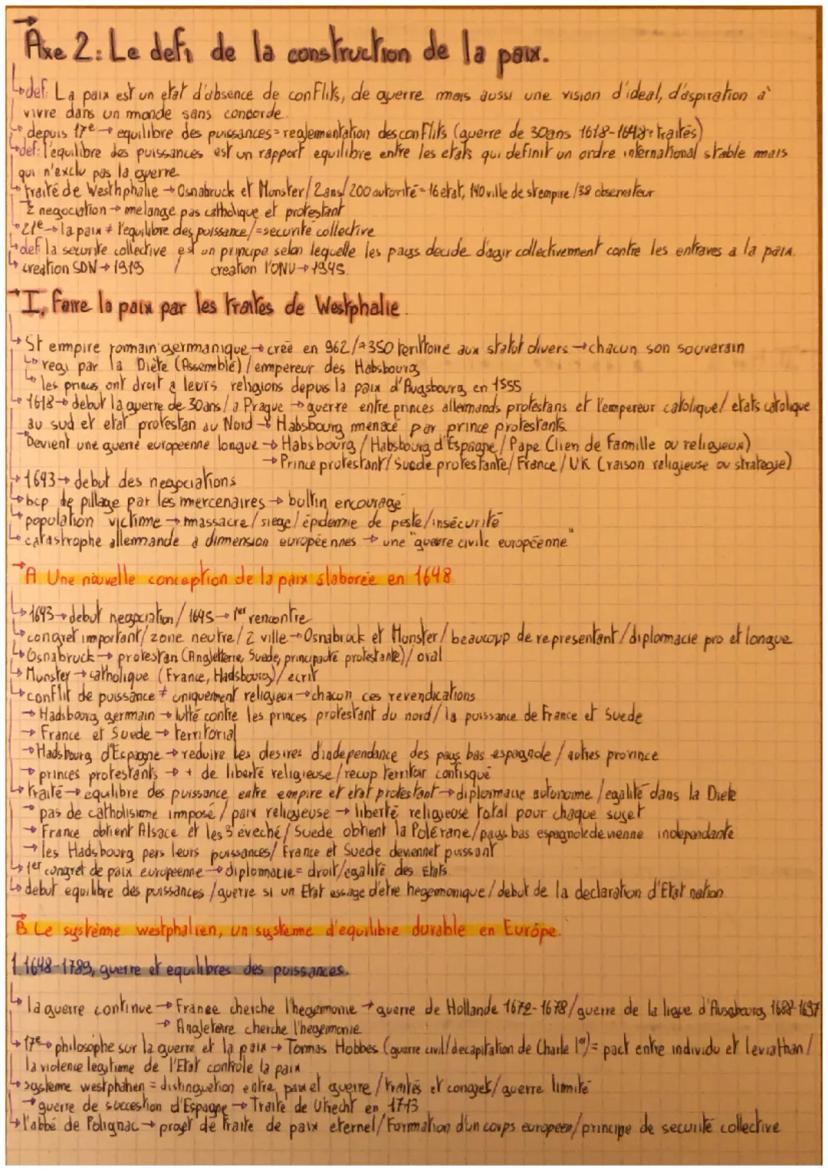 Axe 2: Le defi de la construction de la paix.
↳def: La paix est un etat d'absence de conflits, de guerre mais aussi une vision d'ideal, d'aspiration à
vivre dans un monde sans concorde.
↳ depuis 17e → equilibre des puissances = reglementation des conflits (guerre de 30ans 1618-1648: traités)
↳def: l'équilibre des puissances est un rapport equilibre entre les etats qui definit un ordre international stable mais
qui n'exclu pas la guerre
↳ traité de Westhphalie → Osnabruck et Monster / 2ans / 200 autorité = 16 etat, 140 ville de st empire / 38 observateur
2 negociation → melange pas catholique et protestant
21e → la paix ≠ l'equilibre des puissance / = securité collective
↳def la securité collective est un principe selon lequelle les pays decide d'agir collectivement contre les entraves a la paix.
↳ creation SDN → 1919 / creation l'ONU → 1945.
I, Faire la paix par les traités de Westphalie.
↳ St empire romain germanique → crée en 962 / ≈ 350 territoire aux statut divers → chacun son souverain
↳ regi par la Diète (Assemblé) / empereur des Habsbourg
↳ les princes ont droit a leurs religions depuis la paix d'Augsbourg en 1555
↳ 1618 → debut la guerre de 30ans / a Prague → guerre entre princes allemands protestans et l'empereur catolique / etats catolique
au sud et etat protestan au Nord → Habsbourg menacé par prince protestants.
Devient une guerre europeenne longue → Habsbourg / Habsbourg d'Espagne / Pape (lien de famille ou religieux)
→ Prince protestant / Suede protestante / France / UK (raison religieuse ou strategie)
↳ 1643 → debut des negociations
↳ bcp de pillage par les mercenaires → buttin encouragé
↳ population victime → massacre / siege / épidemie de peste / insécurité
↳ catastrophe allemande a dimension européennes → une "guerre civile européenne"
A Une nouvelle conception de la paix élaborée en 1648
↳ 1643 → debut negociation / 1645 → 1er rencontre
↳ congret important / zone neutre / 2 ville → Osnabruck et Munster / beaucoup de representant / diplomacie pro et longue
↳ Osnabruck → protestan (Angleterre, Suede, principauté protestante) / oral
↳ Munster → catholique (France, Hadsbourg) / ecrit
↳ conflit de puissance ≠ uniquement religieux → chacun ces revendications
→ Hadsbourg germain → lutté contre les princes protestant du nord / la puissance de France et Suede
→ France et Suede → territorial
→ Hadsbourg d'Espagne → reduire les desires d'independance des pays bas espagnole / autres province
→ princes protestants → + de liberté religieuse / recup territoir confisqué
↳ traité → equilibre des puissance entre empire et etat protestant → diplomacie autonome / egalité dans la Diete
→ pas de catholisisme imposé / paix religieuse → liberté religieuse total pour chaque sujet
→ France obtient Alsace et les 3 eveché / Suede obtient la Polérane / pays bas espagnole devienne independante
→ les Hadsbourg pers leurs puissances / France et Suede deviennet puissant
↳ 1er congret de paix europeenne → diplomacie = droit / egalité des Etats
↳ debut equilibre des puissances / guerre si un Etat essaye d'etre hegemonique / debut de la declaration d'Etat nation.
B Le système westphalien, un systeme d'equilibre durable en Europe.
1 1648-1789, guerre et equilibres des puissances.
↳ la guerre continue → France cherche l'hegemonie → guerre de Hollande 1672-1678 / guerre de la ligue d'Ausgbourg 1688-1697
→ Angleterre cherche l'hegemonie
↳ 17e → philosophe sur la guerre et la paix → Tommas Hobbes (guerre civil / decapitation de Charle 1er) = pact entre individu et leviathan /
la violence legitime de l'Etat controle la paix
↳ systeme westphalien = distinguetion entre paix et guerre / traités et congret / guerre limité
↳ guerre de succestion d'Espagne → Traité de Utrecht en 1713
↳ l'abbé de Polignac → projet de traite de paix eternel / Formation d'un corps europeen / principe de securité collective